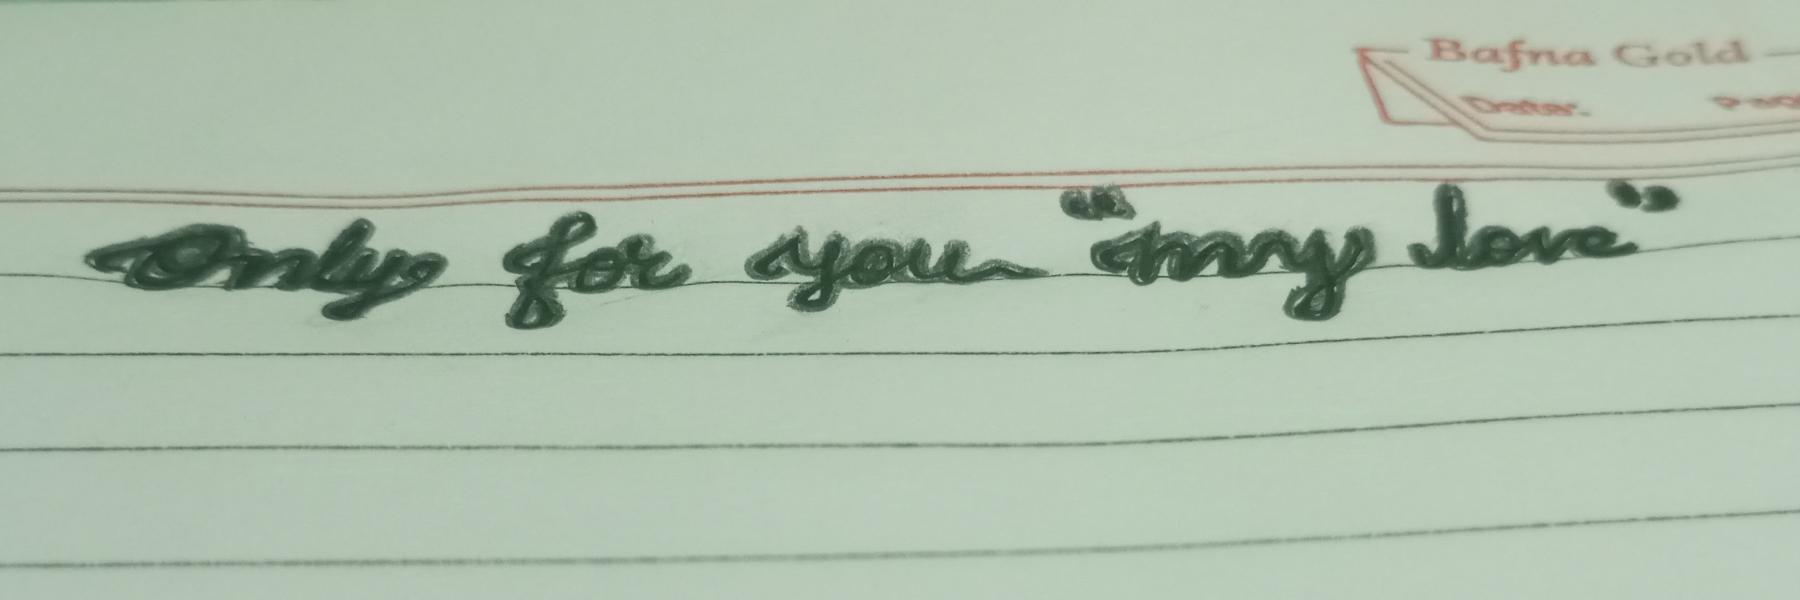 Bafna Gold
Date:
Only for you "my love"